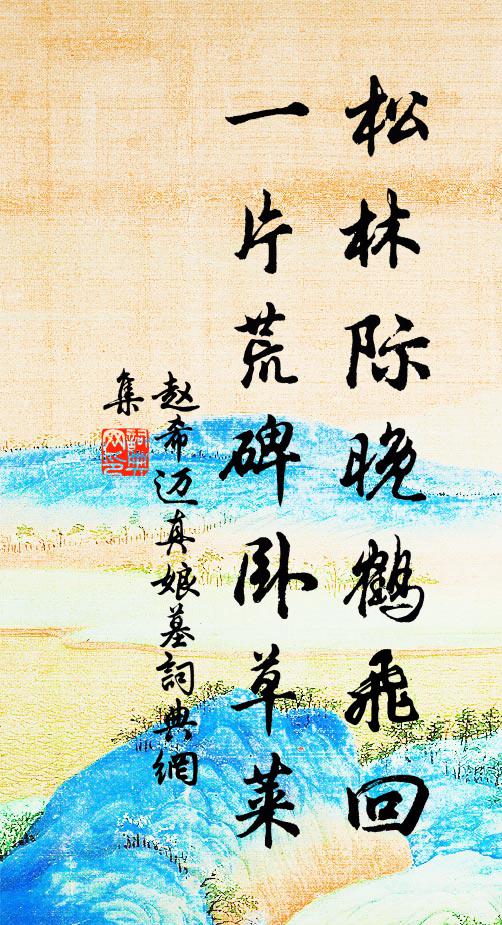 松林际晚鹤飞回
一片荒碑卧草莱
赵希迈真娘墓詞典網
集